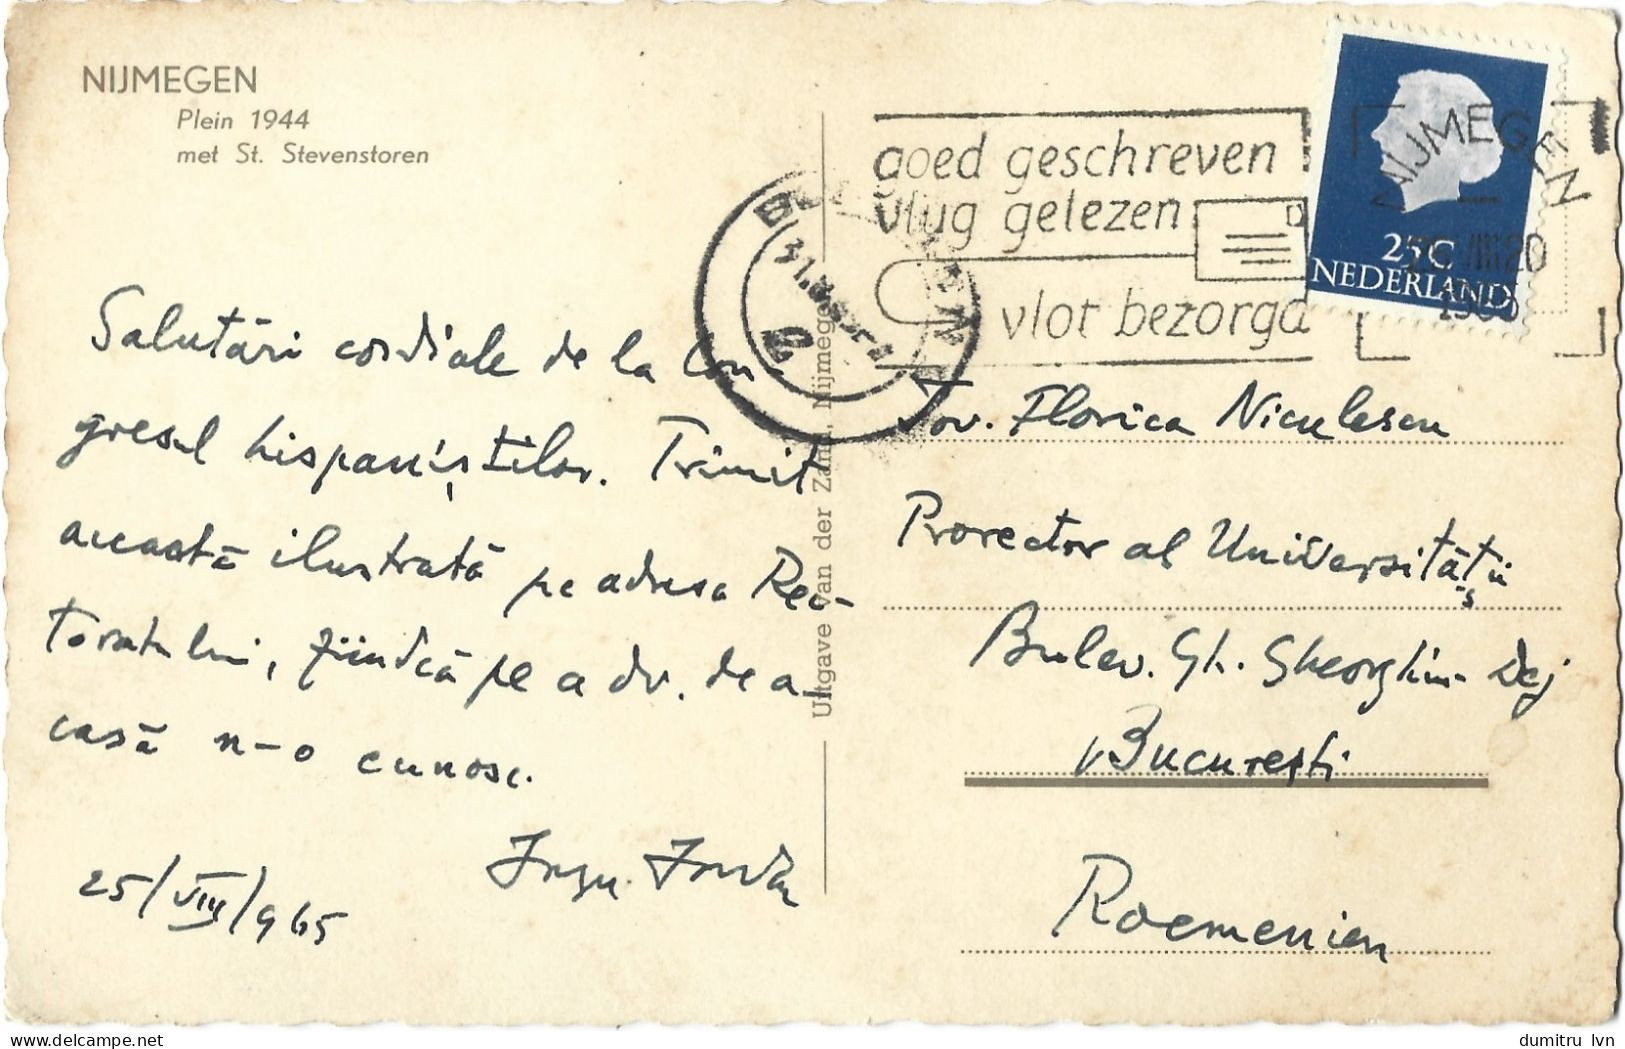 NIJMEGEN
Plein 1944
met St. Stevenstoren
goed geschreven
vlug gelezen
vlot bezorgd
NIJMEGEN
25 C
NEDERLAND
Salutări cordiale de la Con-
gresul hispaniștilor. Trimit
această ilustrată pe adresa Rec-
toratului, fiindcă pe adr. de a-
casă n-o cunosc.
Iorgu Iordan
25/VIII/965
Uitgave van der Zand, Nijmegen
Tov. Florica Niculescu
Prorector al Universității
Bulev. Gh. Gheorghiu-Dej
București
Roemenien
dumitru lvn